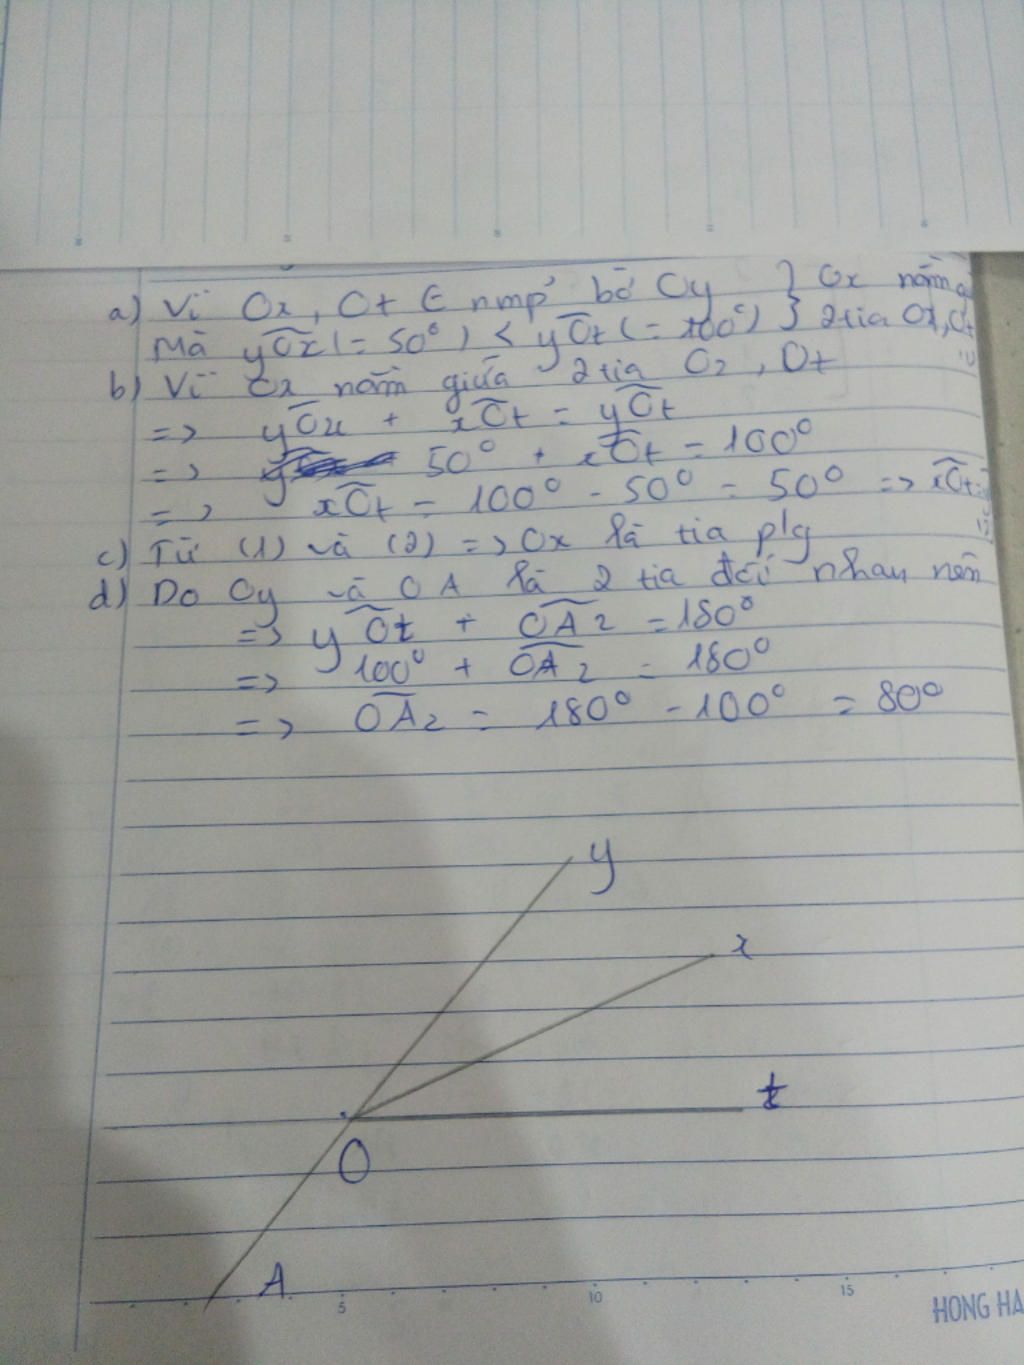 a) Vì Ox, Ot ∈ nmp' bờ Oy } Ox nằm
Mà yOx (= 50°) < yOt (= 100°) } 2 tia Ox, Ot
b) Vì Ox nằm giữa 2 tia Oz, Ot
=> yOx + xOt = yOt
=> 50° + xOt = 100°
=> xOt = 100° - 50° = 50° => xOt =
c) Từ (1) và (2) => Ox là tia p/g
d) Do Oy và OA là 2 tia đối nhau nên
=> yOt + OAz = 180°
=> 100° + OAz = 180°
=> OAz = 180° - 100° = 80°
y
x
t
O
A
5 10 15
HONG HA